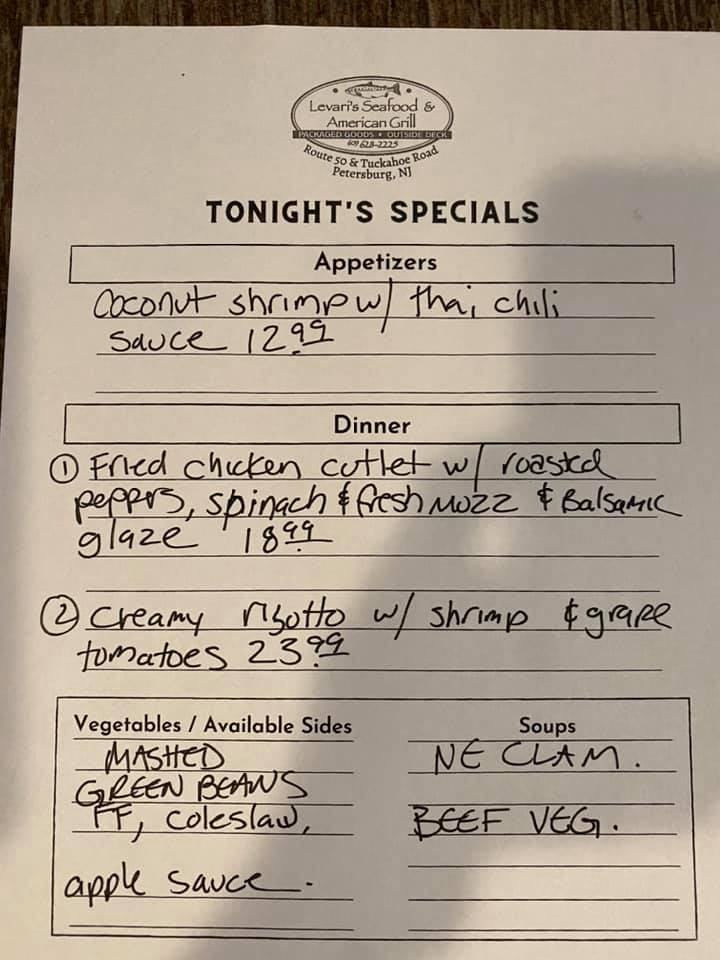 Levari's Seafood &
American Grill
PACKAGED GOODS • OUTSIDE DECK
609 628-2225
Route 50 & Tuckahoe Road
Petersburg, NJ
TONIGHT'S SPECIALS
Appetizers
Coconut shrimp w/ thai chili
sauce 12.99
Dinner
① Fried chicken cutlet w/ roasted
peppers, spinach & fresh Mozz & Balsamic
glaze 18.99
② Creamy risotto w/ shrimp & grape
tomatoes 23.99
Vegetables / Available Sides
MASHED
GREEN BEANS
FF, coleslaw,
apple sauce.
Soups
NE CLAM.
BEEF VEG.